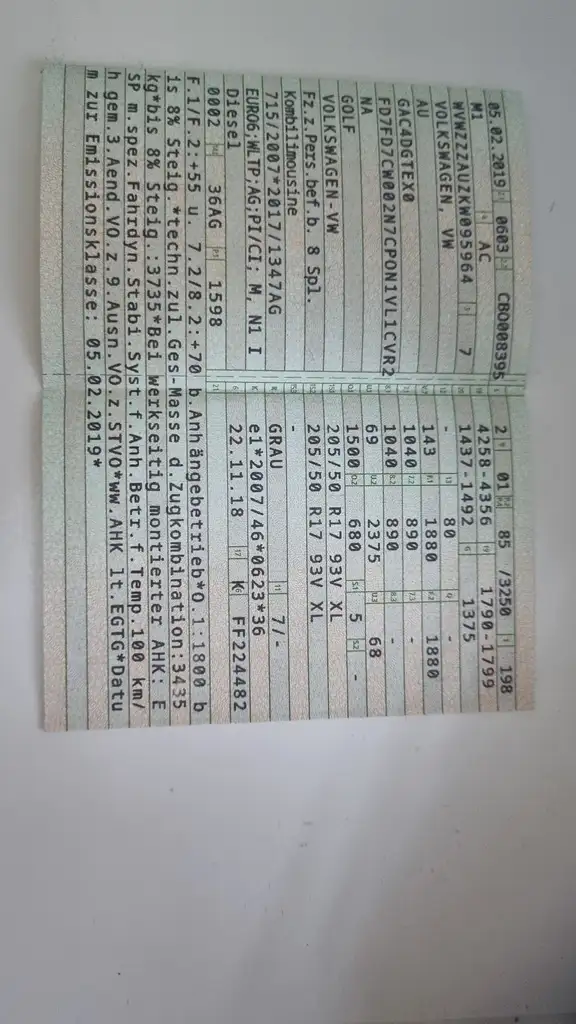 05.02.2019 0603 CBO008395
M1 AC
WVWZZZAUZKW095964 7
VOLKSWAGEN, VW
AU
GAC4DGTEX0
FD7FD7CW002N7CPON1VL1CVR2
NA
GOLF
VOLKSWAGEN-VW
Fz.z.Pers.bef.b. 8 Spl.
Kombilimousine
715/2007*2017/1347AG
EURO6;WLTP;AG;PI/CI; M, N1 I
Diesel
0002 36AG 1598
2 01 85 /3250 198
4258-4356 1790-1799
1437-1492 1375
- 80 -
143 1880 1880
1040 890 -
1040 890 -
69 2375 68
1500 680 5 -
205/50 R17 93V XL
205/50 R17 93V XL
-
GRAU 7/-
e1*2007/46*0623*36
22.11.18 K FF224482
F.1/F.2:+55 u. 7.2/8.2:+70 b.Anhängebetrieb*O.1:1800 b
is 8% Steig.*techn.zul.Ges-Masse d.Zugkombination:3435
kg*bis 8% Steig.:3735*Bei werkseitig montierter AHK: E
SP m.spez.Fahrdyn.Stabi.Syst.f.Anh.Betr.f.Temp.100 km/
h gem.3.Aend.VO.z.9.Ausn.VO.z.STVO*ww.AHK lt.EGTG*Datu
m zur Emissionsklasse: 05.02.2019*